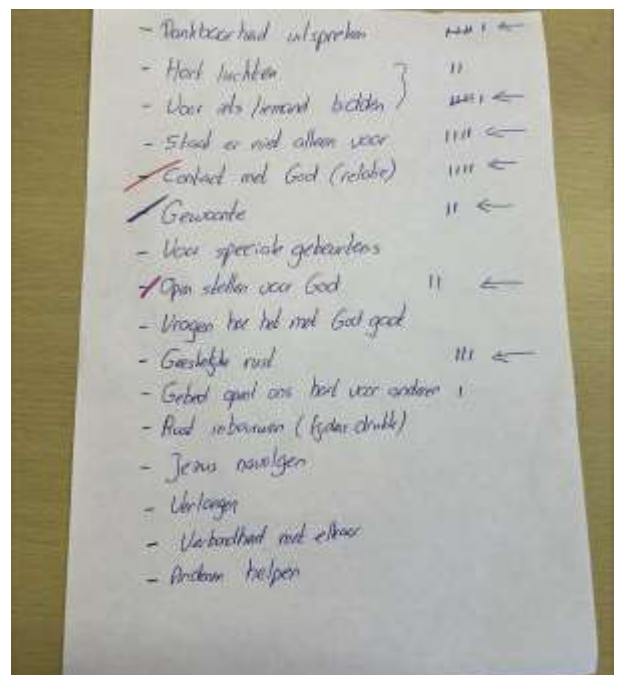 - Dankbaarheid uitspreken
- Hart luchten
- Voor iets/iemand bidden
- Staat er niet alleen voor
- Contact met God (relatie)
Gewoonte
- Voor speciale gebeurtenis
- Open stellen voor God
- Vragen hoe het met God gaat
- Geestelijke rust
- Gebed opent ons hart voor anderen
- Rust inbouwen (tijdens drukte)
- Jezus navolgen
- Verlangen
- Verbondheid met elkaar
- Anderen helpen